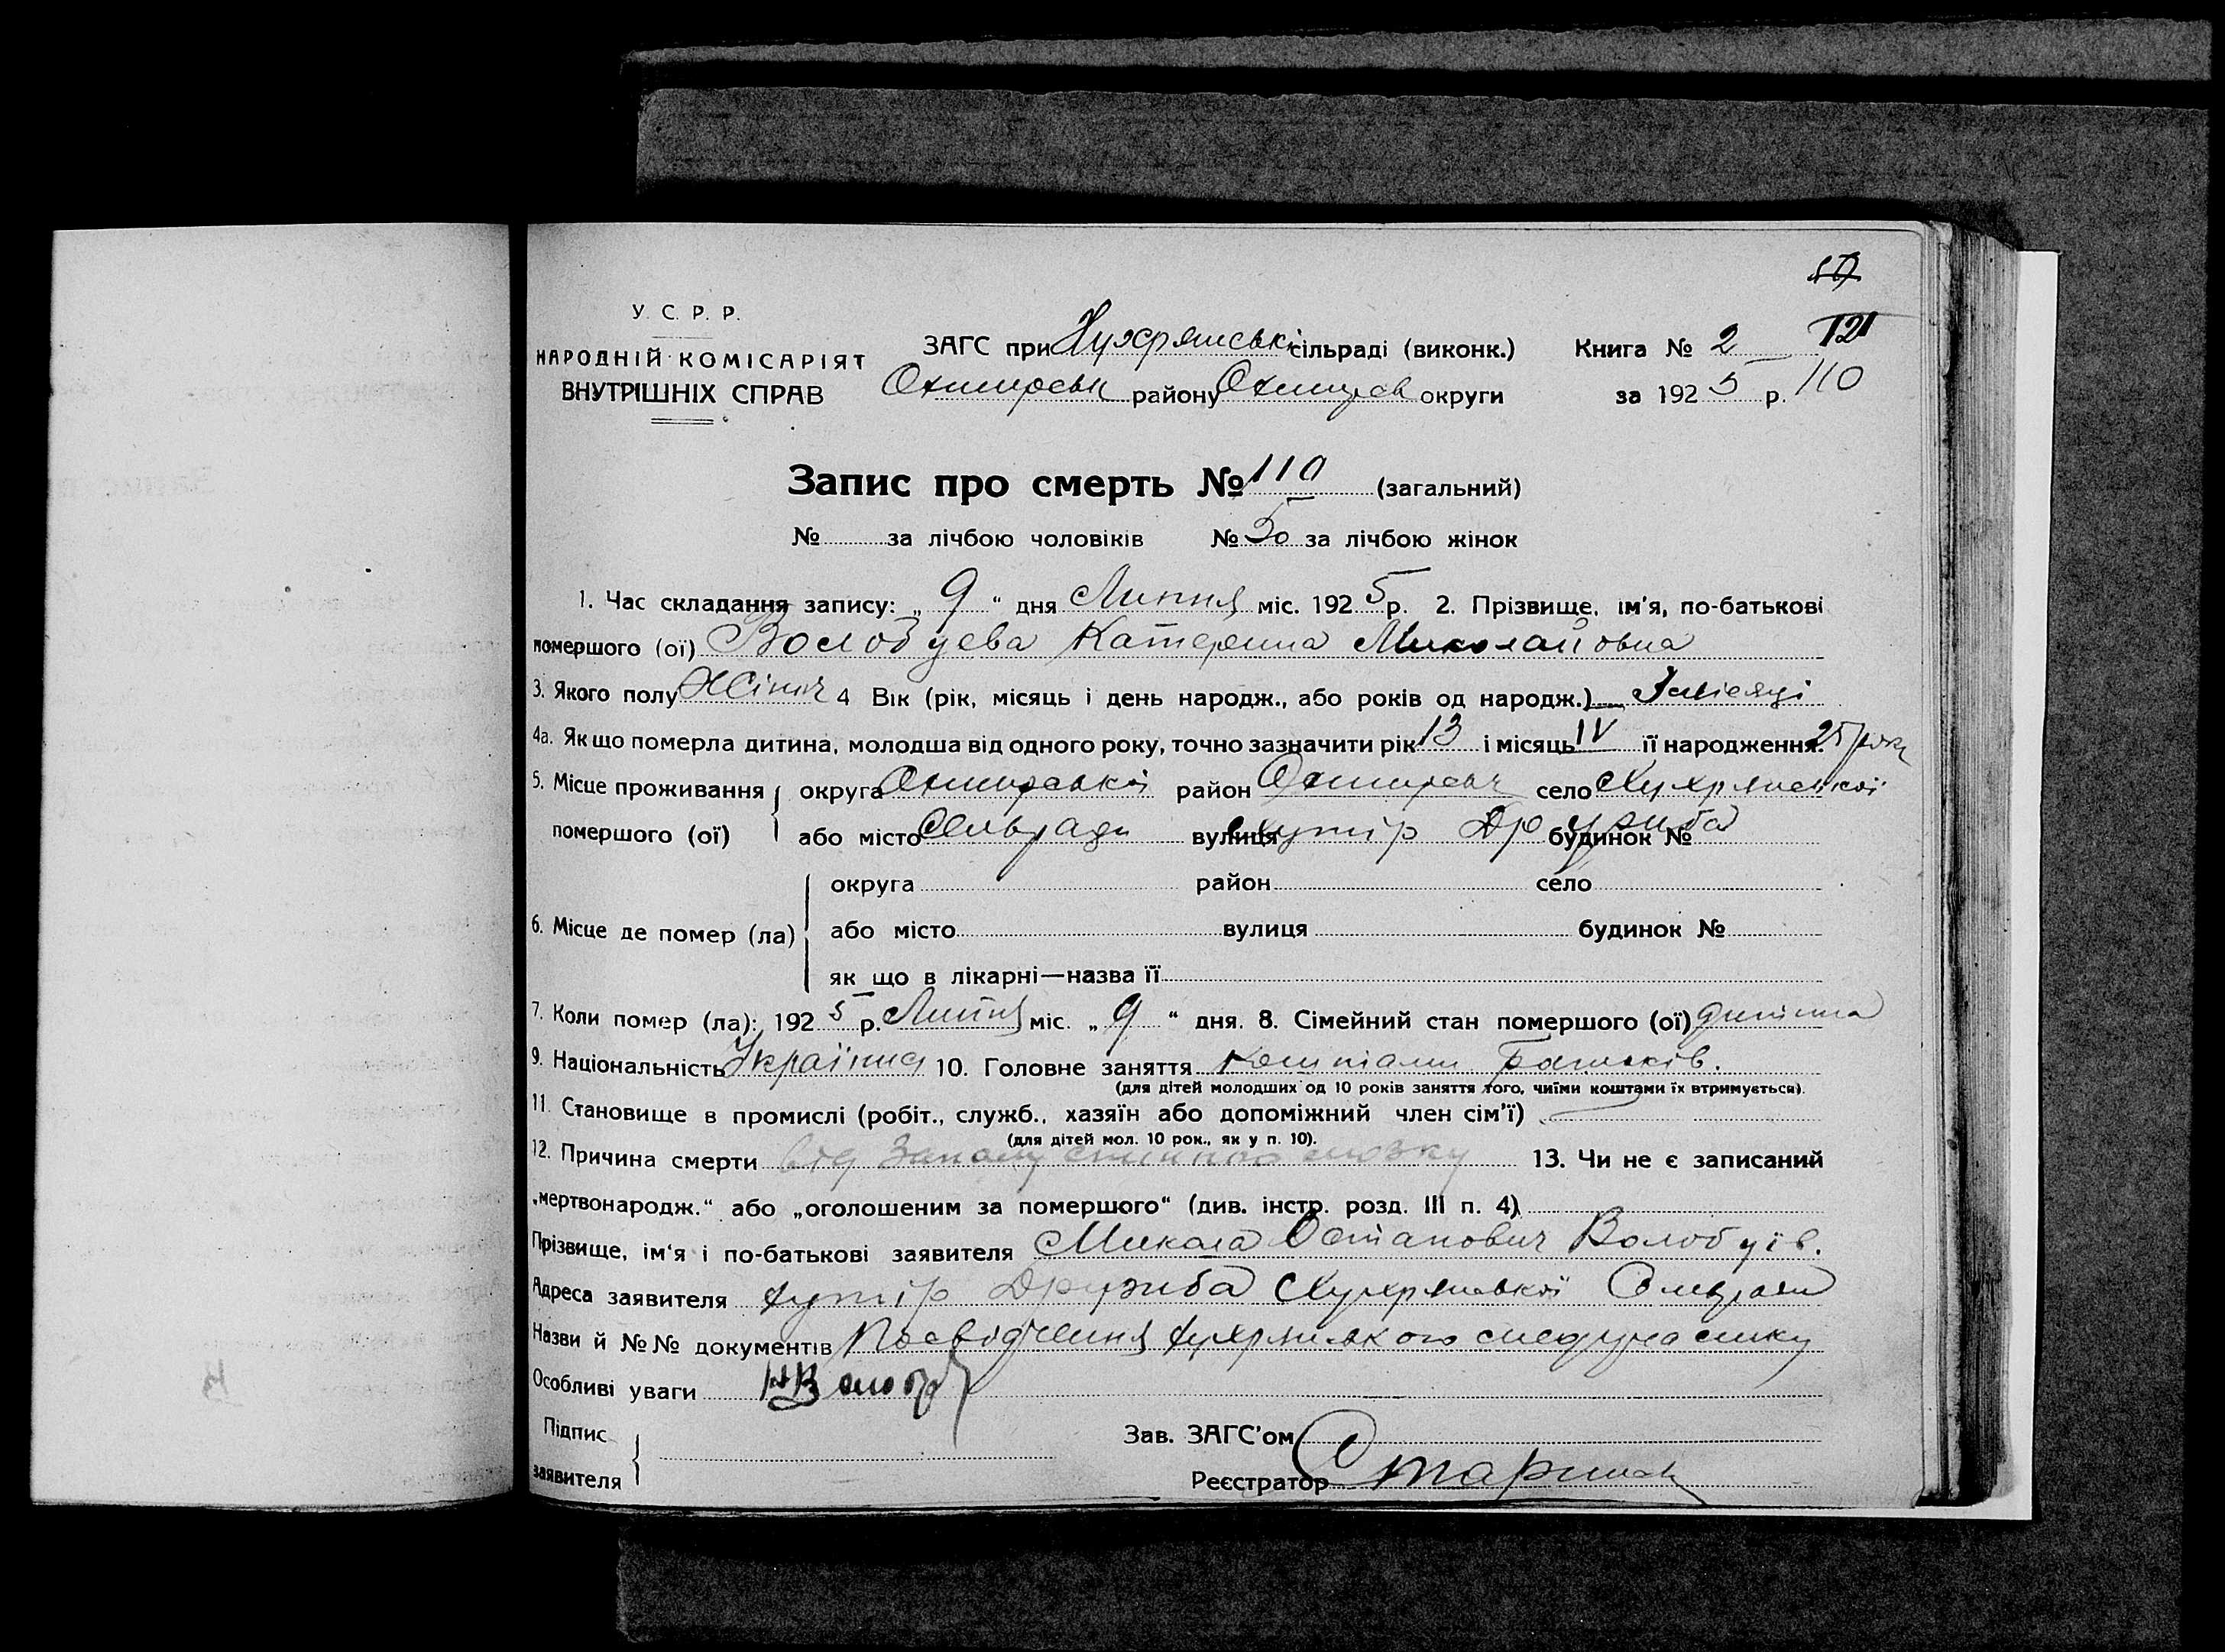 50
У. С. Р. Р.
НАРОДНІЙ КОМІСАРІЯТ
ВНУТРІШНІХ СПРАВ
ЗАГС при Хухрянській сільраді (виконк.) Книга № 2 121
Охтирськ району Охтирськ округи за 1925 р. 110
Запис про смерть № 110 (загальний)
№ за лічбою чоловіків № 50 за лічбою жінок
1. Час складання запису: „9“ дня Липня міс. 1925 р. 2. Прізвище, ім'я, по-батькові
помершого (ої) Волобуева Катерина Миколайовна
3. Якого полу Жіноч 4 Вік (рік, місяць і день народж., або років од народж.) 3 місяці
4а. Якщо померла дитина, молодша від одного року, точно зазначити рік 13 і місяць IV її народження 25 року
5. Місце проживання округа Охтирської район Охтирськ село Хухрянської
помершого (ої) або місто Сільради вулиця хутір Дружба будинок №
округа район село
6. Місце де помер (ла) або місто вулиця будинок №
як що в лікарні—назва її
7. Коли помер (ла): 1925 р. Липня міс. „9“ дня. 8. Сімейний стан помершого (ої) дитина
9. Національність Українка 10. Головне заняття коштами батьків.
(для дітей молодших од 10 років заняття того, чиїми коштами їх втримується).
11. Становище в промислі (робіт., служб., хазяїн або допоміжний член сім'ї)
(для дітей мол. 10 рок., як у п. 10).
12. Причина смерти від Запалу спинного мозку 13. Чи не є записаний
„мертвонародж.“ або „оголошеним за помершого“ (див. інстр. розд. III п. 4)
Прізвище, ім'я і по-батькові заявителя Микола Остапович Волобуїв.
Адреса заявителя хутір Дружба Хухрянської Сільради
Назви й №№ документів Посвідчення Хухрянського медучастку
Особливі уваги
Підпис
заявителя
Зав. ЗАГС'ом
Реєстратор